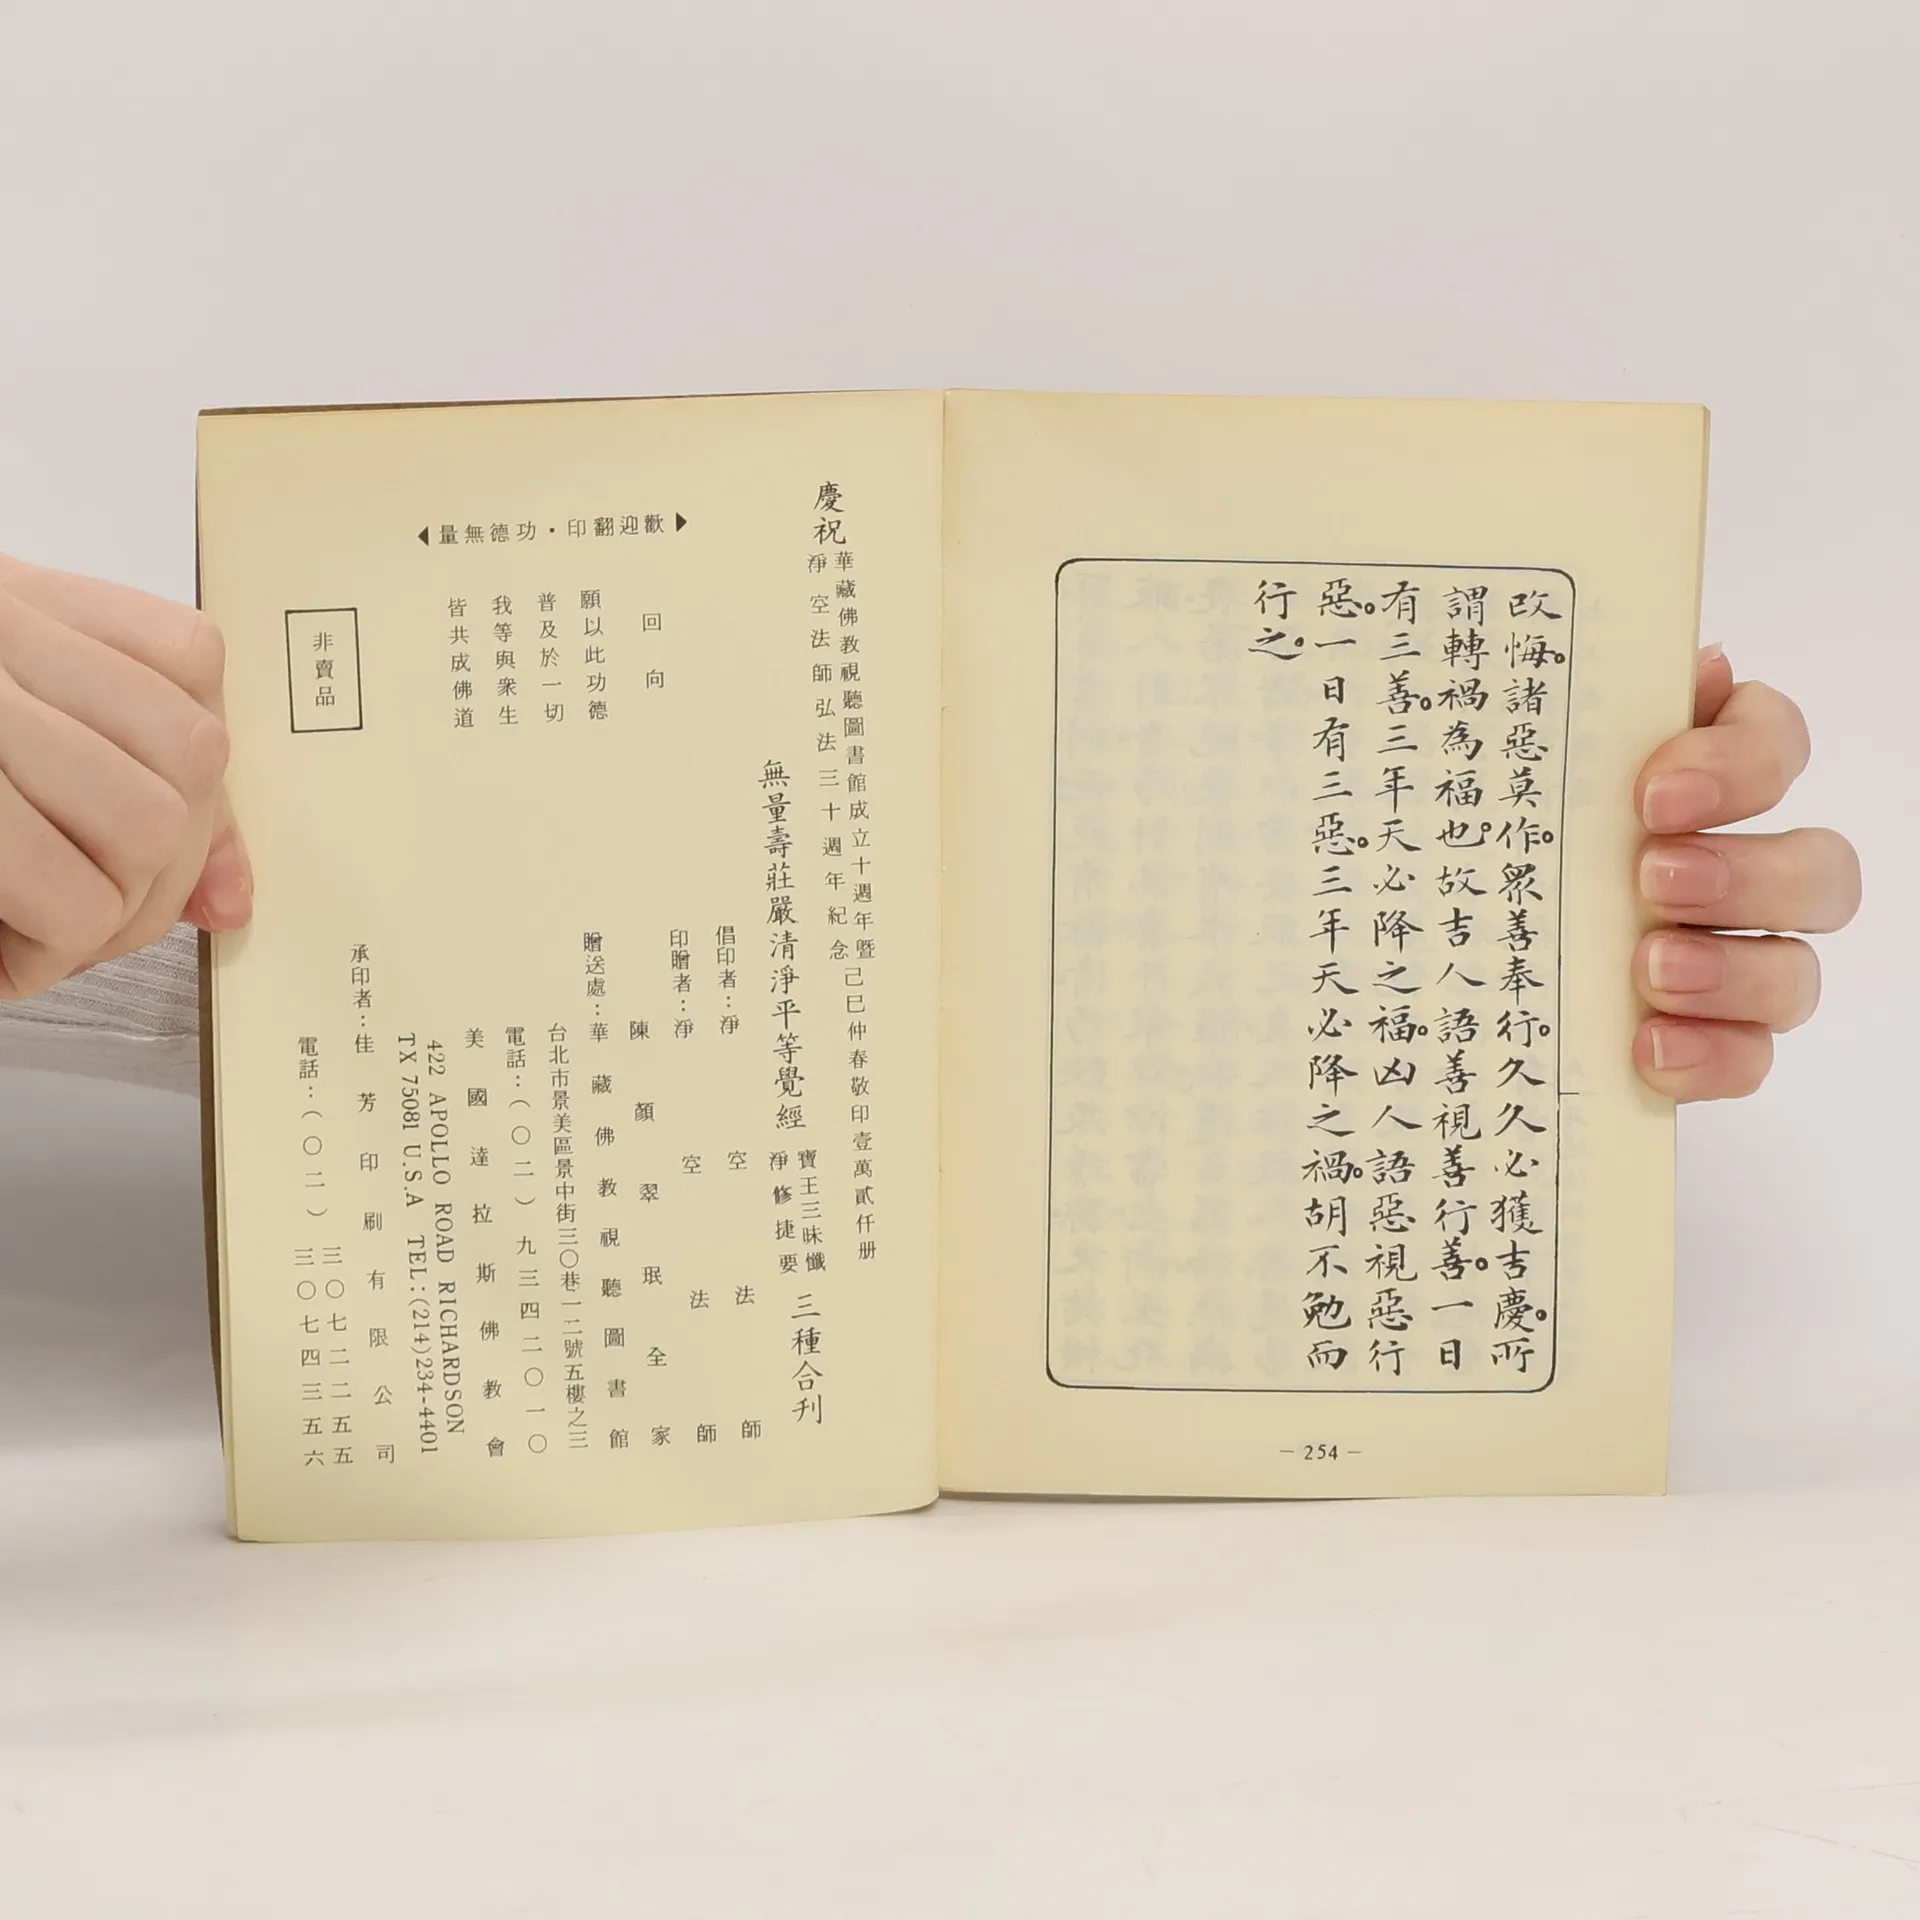 改悔。諸惡莫作。眾善奉行。久久必獲吉慶。所
謂轉禍為福也。故吉人語善視善行善。一日
有三善。三年天必降之福。凶人語惡視惡行
惡。一日有三惡。三年天必降之禍。胡不勉而
行之。
— 254 —
慶祝
華藏佛教視聽圖書館成立十週年暨
淨空法師弘法三十週年紀念
己巳仲春敬印壹萬貳仟册
無量壽莊嚴清淨平等覺經
寶王三昧懺
淨修捷要
三種合刊
倡印者：淨空法師
印贈者：淨空法師
陳顏翠珉全家
贈送處：華藏佛教視聽圖書館
台北市景美區景中街三〇巷十二號五樓之三
電話：（〇二）九三四二〇一〇
美國達拉斯佛教會
422 APOLLO ROAD RICHARDSON
TX 75081 U.S.A TEL:(214)234-4401
承印者：佳芳印刷有限公司
電話：（〇二）三〇七二二五五
三〇七四三五六
歡迎翻印・功德無量
回向
願以此功德
普及於一切
我等與衆生
皆共成佛道
非賣品